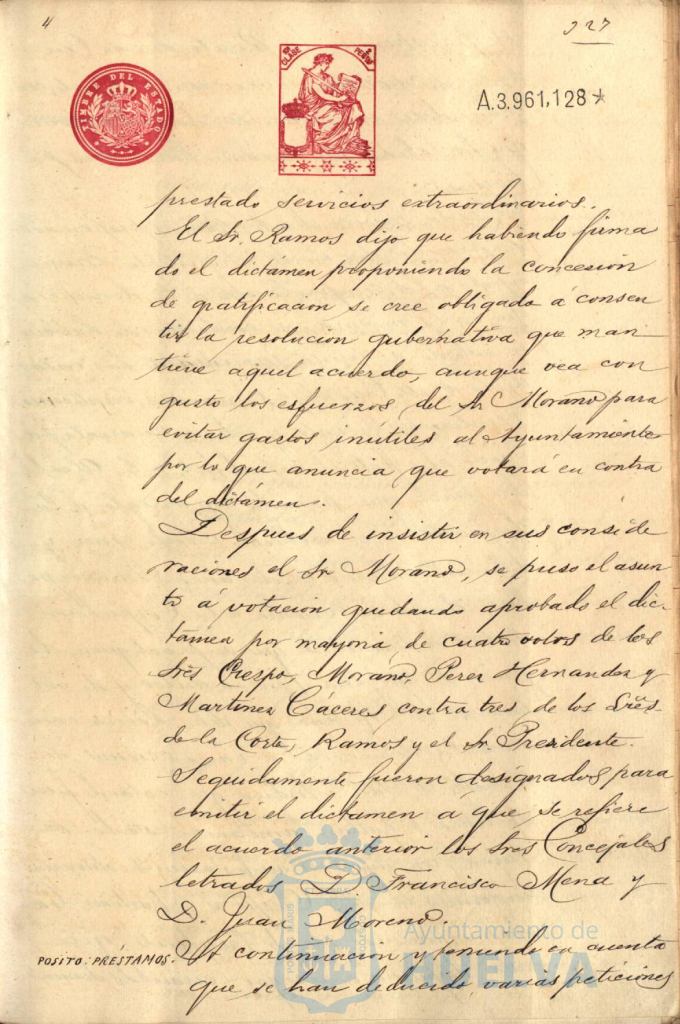 4
227
TIMBRE DEL ESTADO
CLASE
PESETA
A.3.961,128*
prestado servicios extraordinarios.
El Sr. Ramos dijo que habiendo firma
do el dictámen proponiendo la concesión
de gratificacion se cree obligado á consen
tir la resolucion gubernativa que man
tiene aquel acuerdo, aunque vea con
gusto los esfuerzos del Sr Morano para
evitar gastos inútiles al Ayuntamiento
por lo que anuncia que votará en contra
del dictámen.
Despues de insistir en sus conside
raciones el Sr Morano, se puso el asun
to á votacion quedando aprobado el dic-
támen por mayoria de cuatro votos de los
Sres Crespo, Morano, Perez Hernandez y
Martinez Cáceres contra tres de los Sres
de la Corte, Ramos y el Sr. Presidente.
Seguidamente fueron designados para
emitir el dictamen á que se refiere
el acuerdo anterior los Sres Concejales
letrados D. Francisco Mena y
D. Juan Moreno.
POSITO: PRÉSTAMOS.
A continuacion y teniendo en cuenta
que se han deducido varias peticiones
Ayuntamiento de
HUELVA